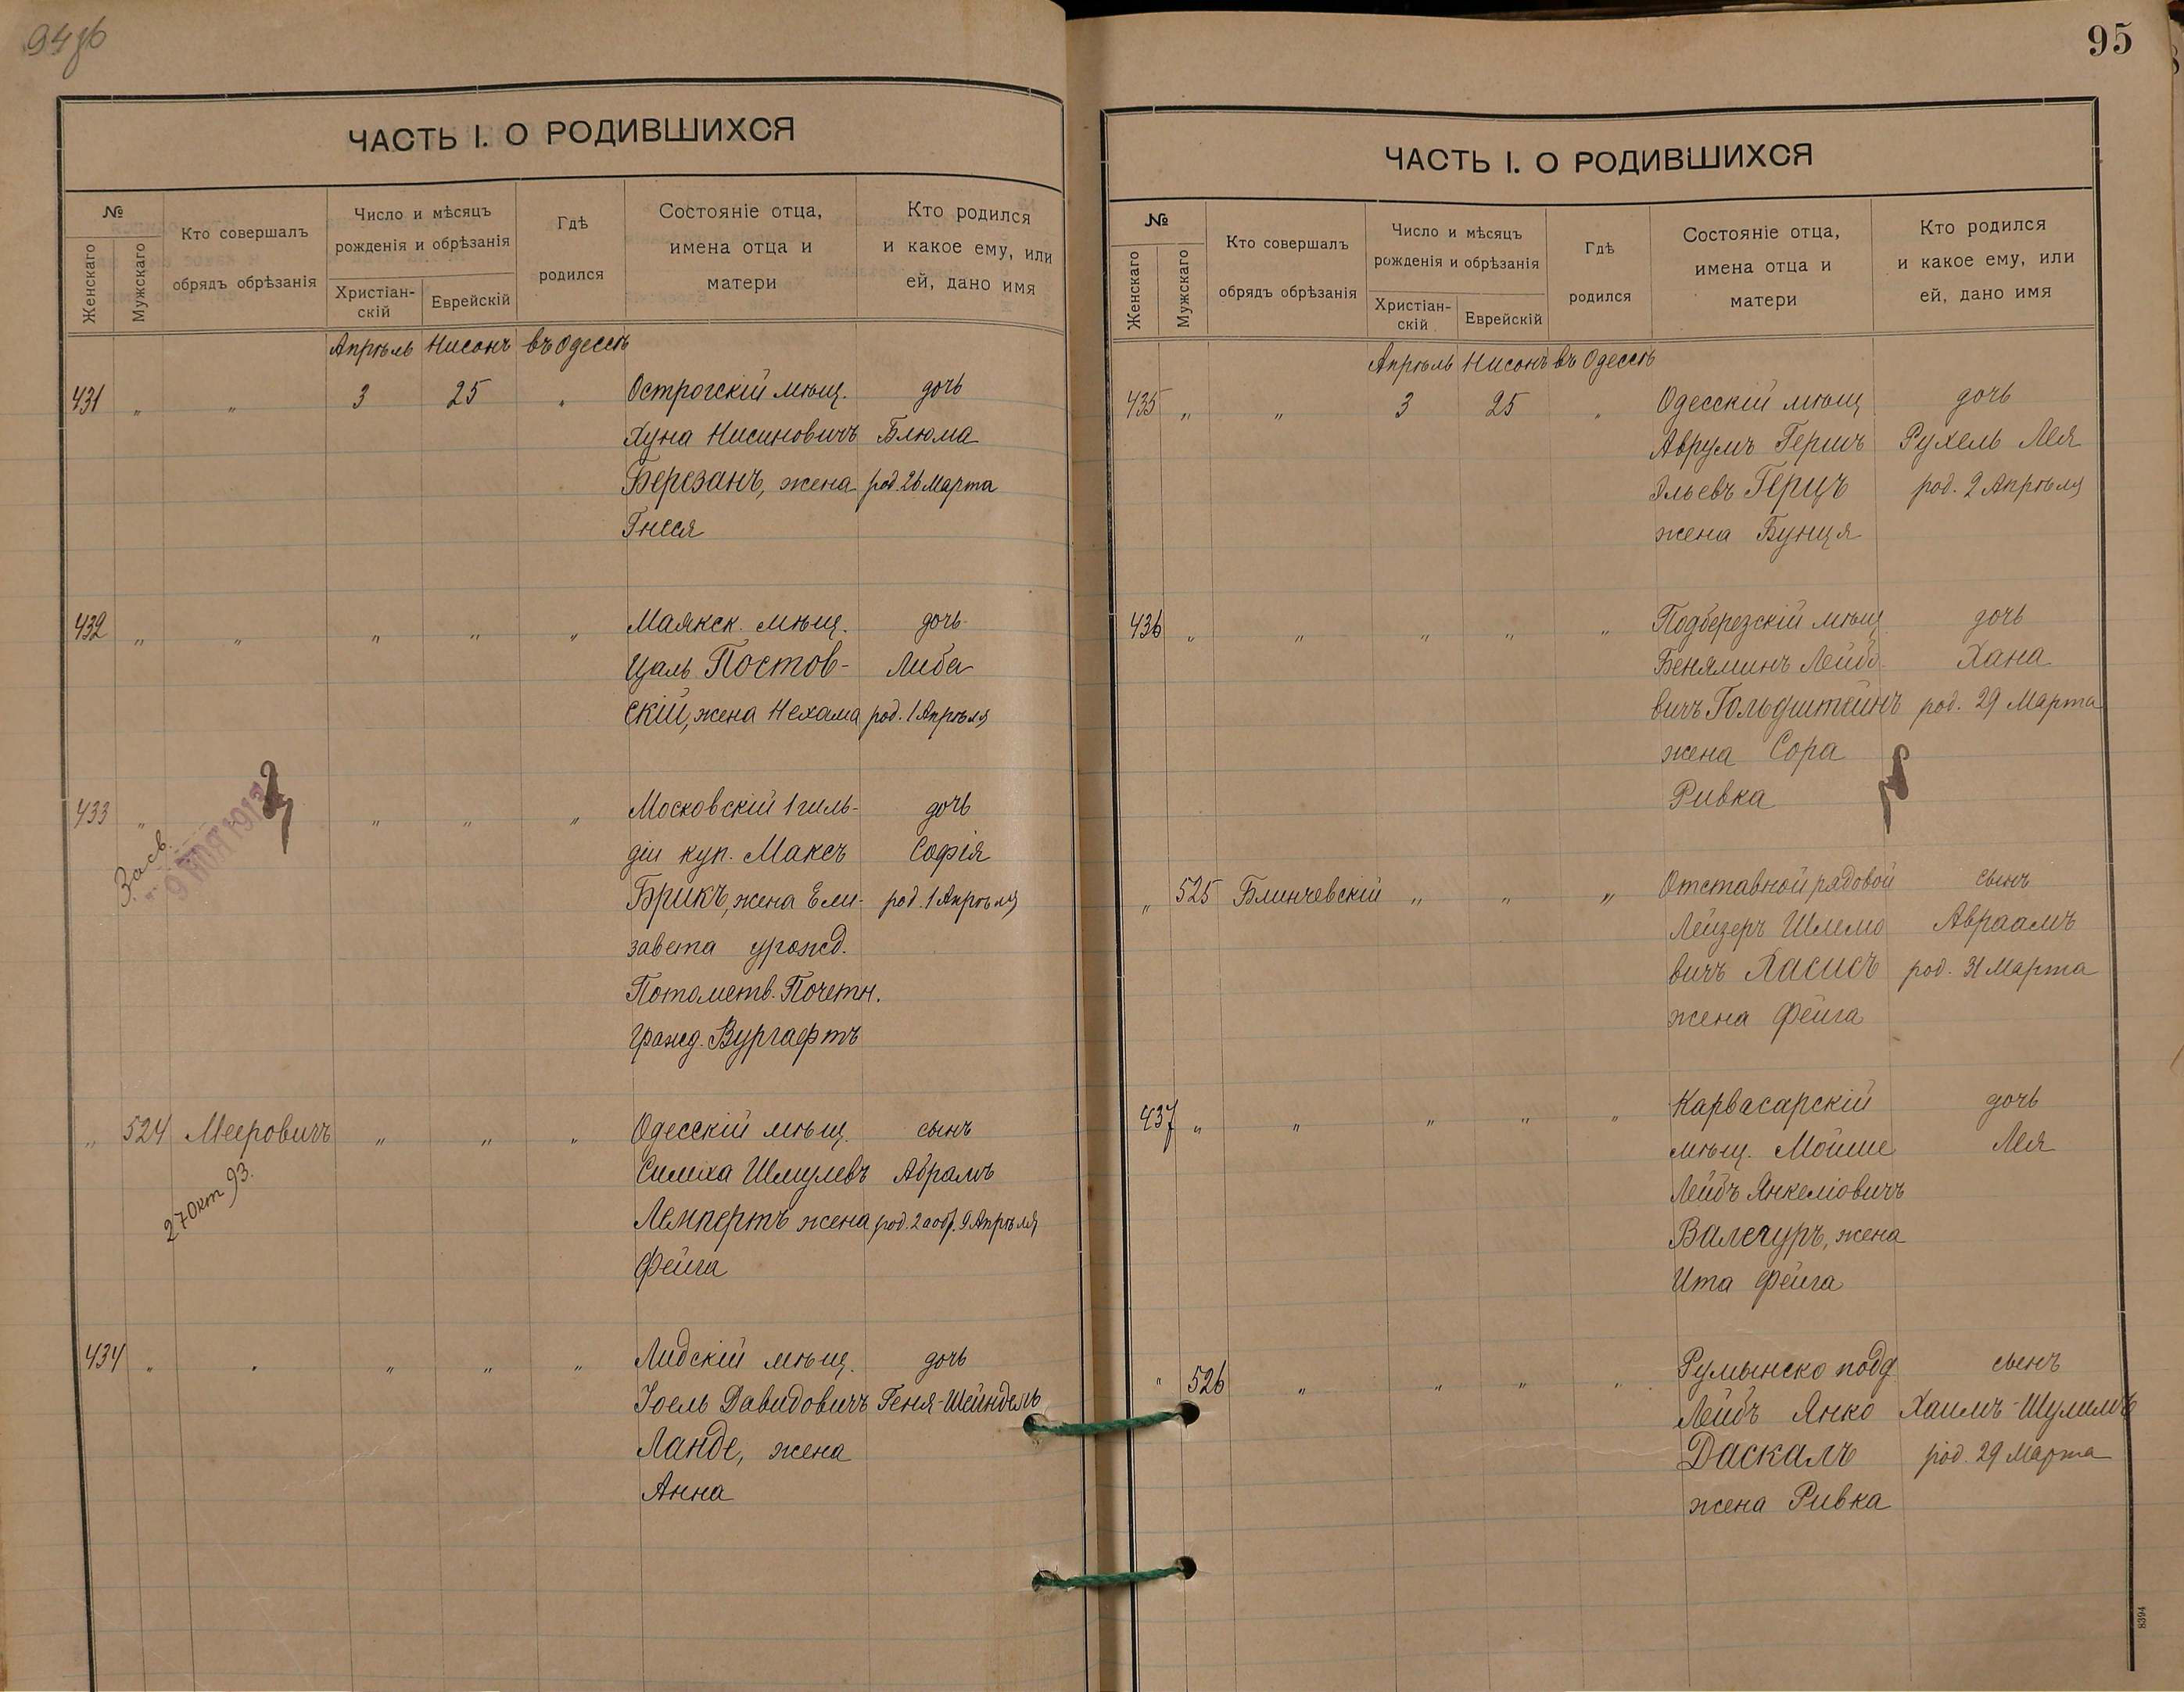 94 об
ЧАСТЬ I. О РОДИВШИХСЯ
№
Женскаго
Мужскаго
Кто совершалъ
обрядъ обрѣзанія
Число и мѣсяцъ
рожденія и обрѣзанія
Христіан-
скій
Еврейскій
Гдѣ
родился
Состояніе отца,
имена отца и
матери
Кто родился
и какое ему, или
ей, дано имя
Апрѣль Нисонъ въ Одессѣ
431 " " 3 25 " Острогскій мѣщ. дочь
Хуна Нисиновичъ Блюма
Березанъ, жена род. 26 Марта
Гнеся
432 " " " " " Маякск. мѣщ. дочь
Цаль Постов- Либа
скій, жена Нехама род. 1 Апрѣля
433 " " " " Московскій 1 гиль- дочь
діи куп. Максъ Софія
Брикъ, жена Ели- род. 1 Апрѣля
завета урожд.
Потомств. Почетн.
гражд. Вургафтъ
Засв.
" 524 Мееровичъ " " " Одесскій мѣщ. сынъ
Симха Шмулевъ Абрамъ
Лемпертъ жена род. 2 а обр. 9 Апрѣля
Фейга
27 Окт 93.
434 " " " " " Лидскій мѣщ. дочь
Іоель Давидовичъ Геня-Шейндель
Ланде, жена
Анна
95
ЧАСТЬ I. О РОДИВШИХСЯ
№
Женскаго
Мужскаго
Кто совершалъ
обрядъ обрѣзанія
Число и мѣсяцъ
рожденія и обрѣзанія
Христіан-
скій
Еврейскій
Гдѣ
родился
Состояніе отца,
имена отца и
матери
Кто родился
и какое ему, или
ей, дано имя
Апрѣль Нисонъ въ Одессѣ
435 " " 3 25 " Одесскій мѣщ дочь
Аврумъ Гершъ Рухель Лея
Эльевъ Герцъ род. 2 Апрѣля
жена Бунця
436 " " " " " Подберезскій мѣщ. дочь
Беняминъ Лейбо Хана
вичъ Гольдштейнъ род. 29 Марта
жена Сора
Ривка
" 525 Блинчевскій " " " Отставной рядовой сынъ
Лейзеръ Шлемо Авраамъ
вичъ Хасисъ род. 31 Марта
жена Фейга
437 " " " " " Карвасарскій дочь
мѣщ. Мойше Лея
Лейбъ Янкеліовичъ
Валегуръ, жена
Ита Фейга
" 526 " " " " Румынско подд. сынъ
Лейбъ Янко Хаимъ-Шулимъ
Даскалъ род. 29 Марта
жена Ривка
8394